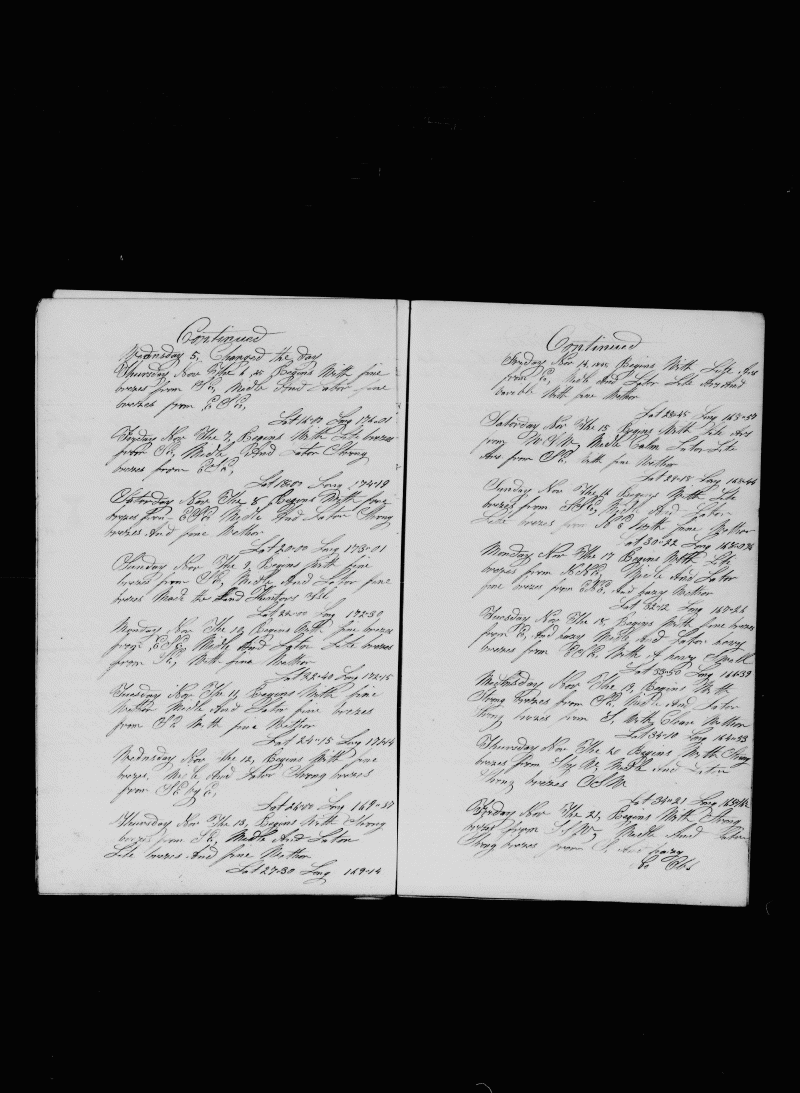 Continued
Wednesday 5, Changed the day
Thursday Nov The 6, Begins With fine
brezes from SE, Midle And Lator fine
brezes from ESE,
Lat 16-50 Long 176-01
Fryday Nov The 7, Begins With Lite brezes
from SE, Midle And Lator Strong
brezes from ESE,
Lat 18-50 Long 174-19
Saterday Nov The 8, Begins With fine
brezes from Midle And Lator Strong
brezes And fine Wether
Lat 20-00 Long 173-01
Sunday Nov The 9, Begins With fine
brezes from SE, Midle And Lator fine
brezes Made the Land
Lat 22-00 Long 172-30
Monday Nov The 10, Begins With fine brezes
from ESE, Midle And Lator Lite brezes
from SE, With fine Wether
Lat 22-40 Long 172-15
Tuesday Nov The 11, Begins With fine
Wether Midle And Lator fine brezes
from SE With fine Wether
Lat 24-15 Long 171-14
Wednesday Nov the 12, Begins With fine
brezes, Midle And Lator Strong brezes
from SE by E,
Lat 26-00 Long 169-37
Thursday Nov The 13, Begins With Strong
brezes from SE, Midle And Lator
Lite brezes And fine Wether
Lat 27-30 Long 169-14
Continued
Fryday Nov 14, Begins With Lite Airs
from E, Midle And Lator Lite Airs And
With fine Wether
Lat 28-45 Long
Saterday Nov The 15 Begins With Lite Airs
from WNW, Midle Calm Lator Lite
Airs from SE, With fine Wether
Lat 28-18 Long 168-44
Sunday Nov The 16 Begins With Lite
brezes from Midle And Lator
Lite brezes from NE With fine Wether
Lat 30-22 Long
Monday Nov The 17 Begins With Lite
brezes from NNE, Midle And Lator
fine brezes from And hazy Wether
Lat 32-12 Long 167-26
Tuesday Nov The 18, Begins With fine brezes
from E, And hazy Midle And Lator hazy
brezes from With A heavy Swell
Lat 33-50 Long 166-39
Wednesday Nov The 19, Begins With
Strong brezes from Midle And Lator
Strong brezes from S, With Clear Wether
Lat 34-10 Long
Thursday Nov The 20 Begins With Strong
brezes from S by W, Midle And Lator
Strong brezes SSW
Lat 34-21 Long
Fryday Nov The 21, Begins With Strong
brezes from SSW, Midle And Lator
Strong brezes from S, And hazy
No Obs